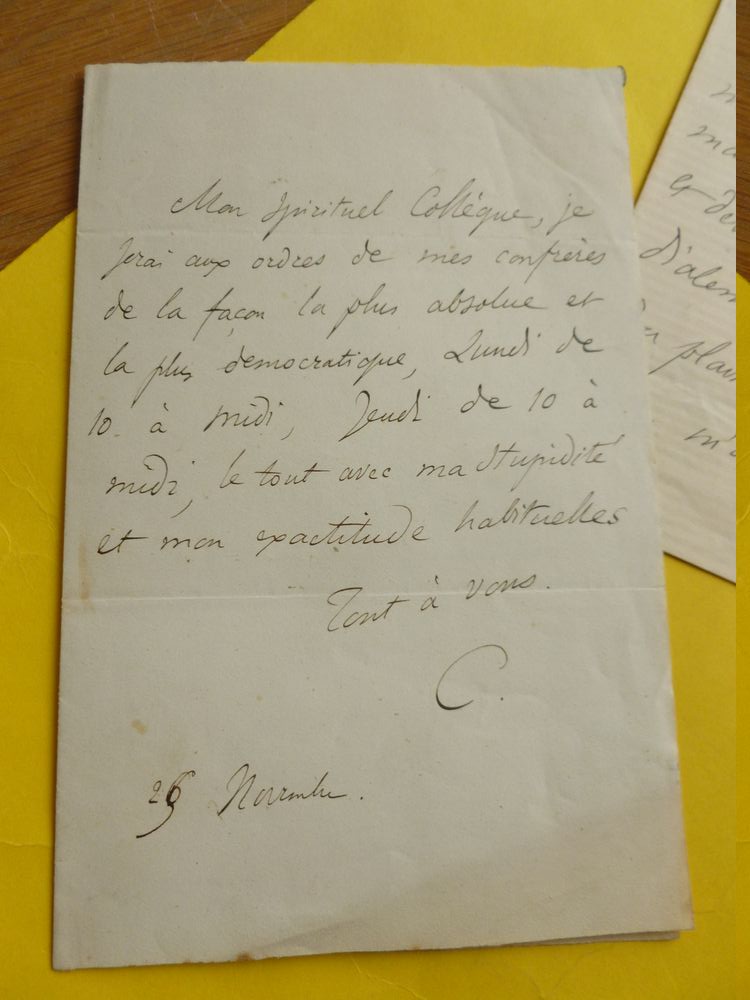 Mon Spirituel Collègue, je
serai aux ordres de mes confrères
de la façon la plus absolue et
la plus democratique, Lundi de
10 à midi, Jeudi de 10 à
midi, le tout avec ma Stupidité
et mon exactitude habituelles
Tout à vous.
C.
Novembre.
et de
d'alem
m'a